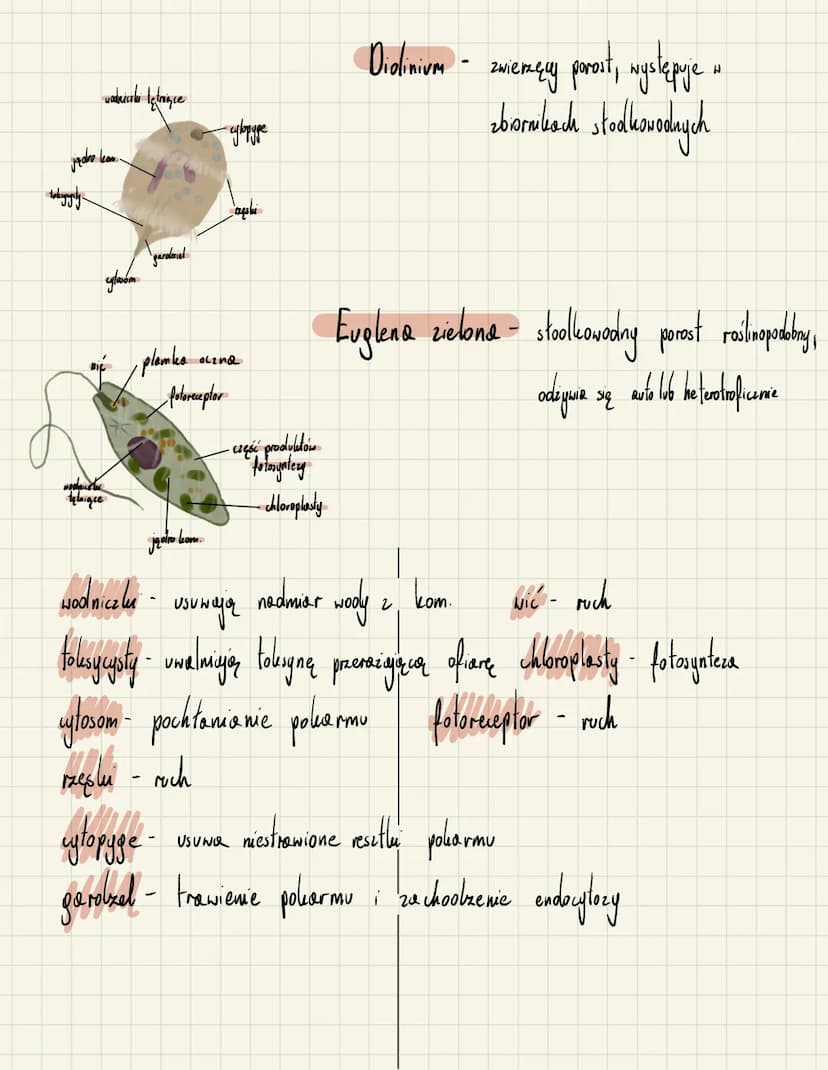 Didinium - zwierzęcy porost, występuje w
zbiornikach słodkowodnych
wodniczki tętniące
cytopyge
jądro kom.
toksycysty
rzęski
gardziel
cytosom
Euglena zielona - słodkowodny porost roślinopodobny,
odżywia się auto lub heterotroficznie
nić
plamka oczna
fotoreceptor
część produktów
fotosyntezy
wodniczki
tętniące
chloroplasty
jądro kom.
wodniczki - usuwają nadmiar wody z kom.
nić - ruch
toksycysty - uwalniają toksynę przerażającą ofiarę
chloroplasty - fotosynteza
cytosom - pochłanianie pokarmu
fotoreceptor - ruch
rzęski - ruch
cytopyge - usuwa niestrawione resztki pokarmu
gardzel - trawienie pokarmu i zachodzenie endocytozy